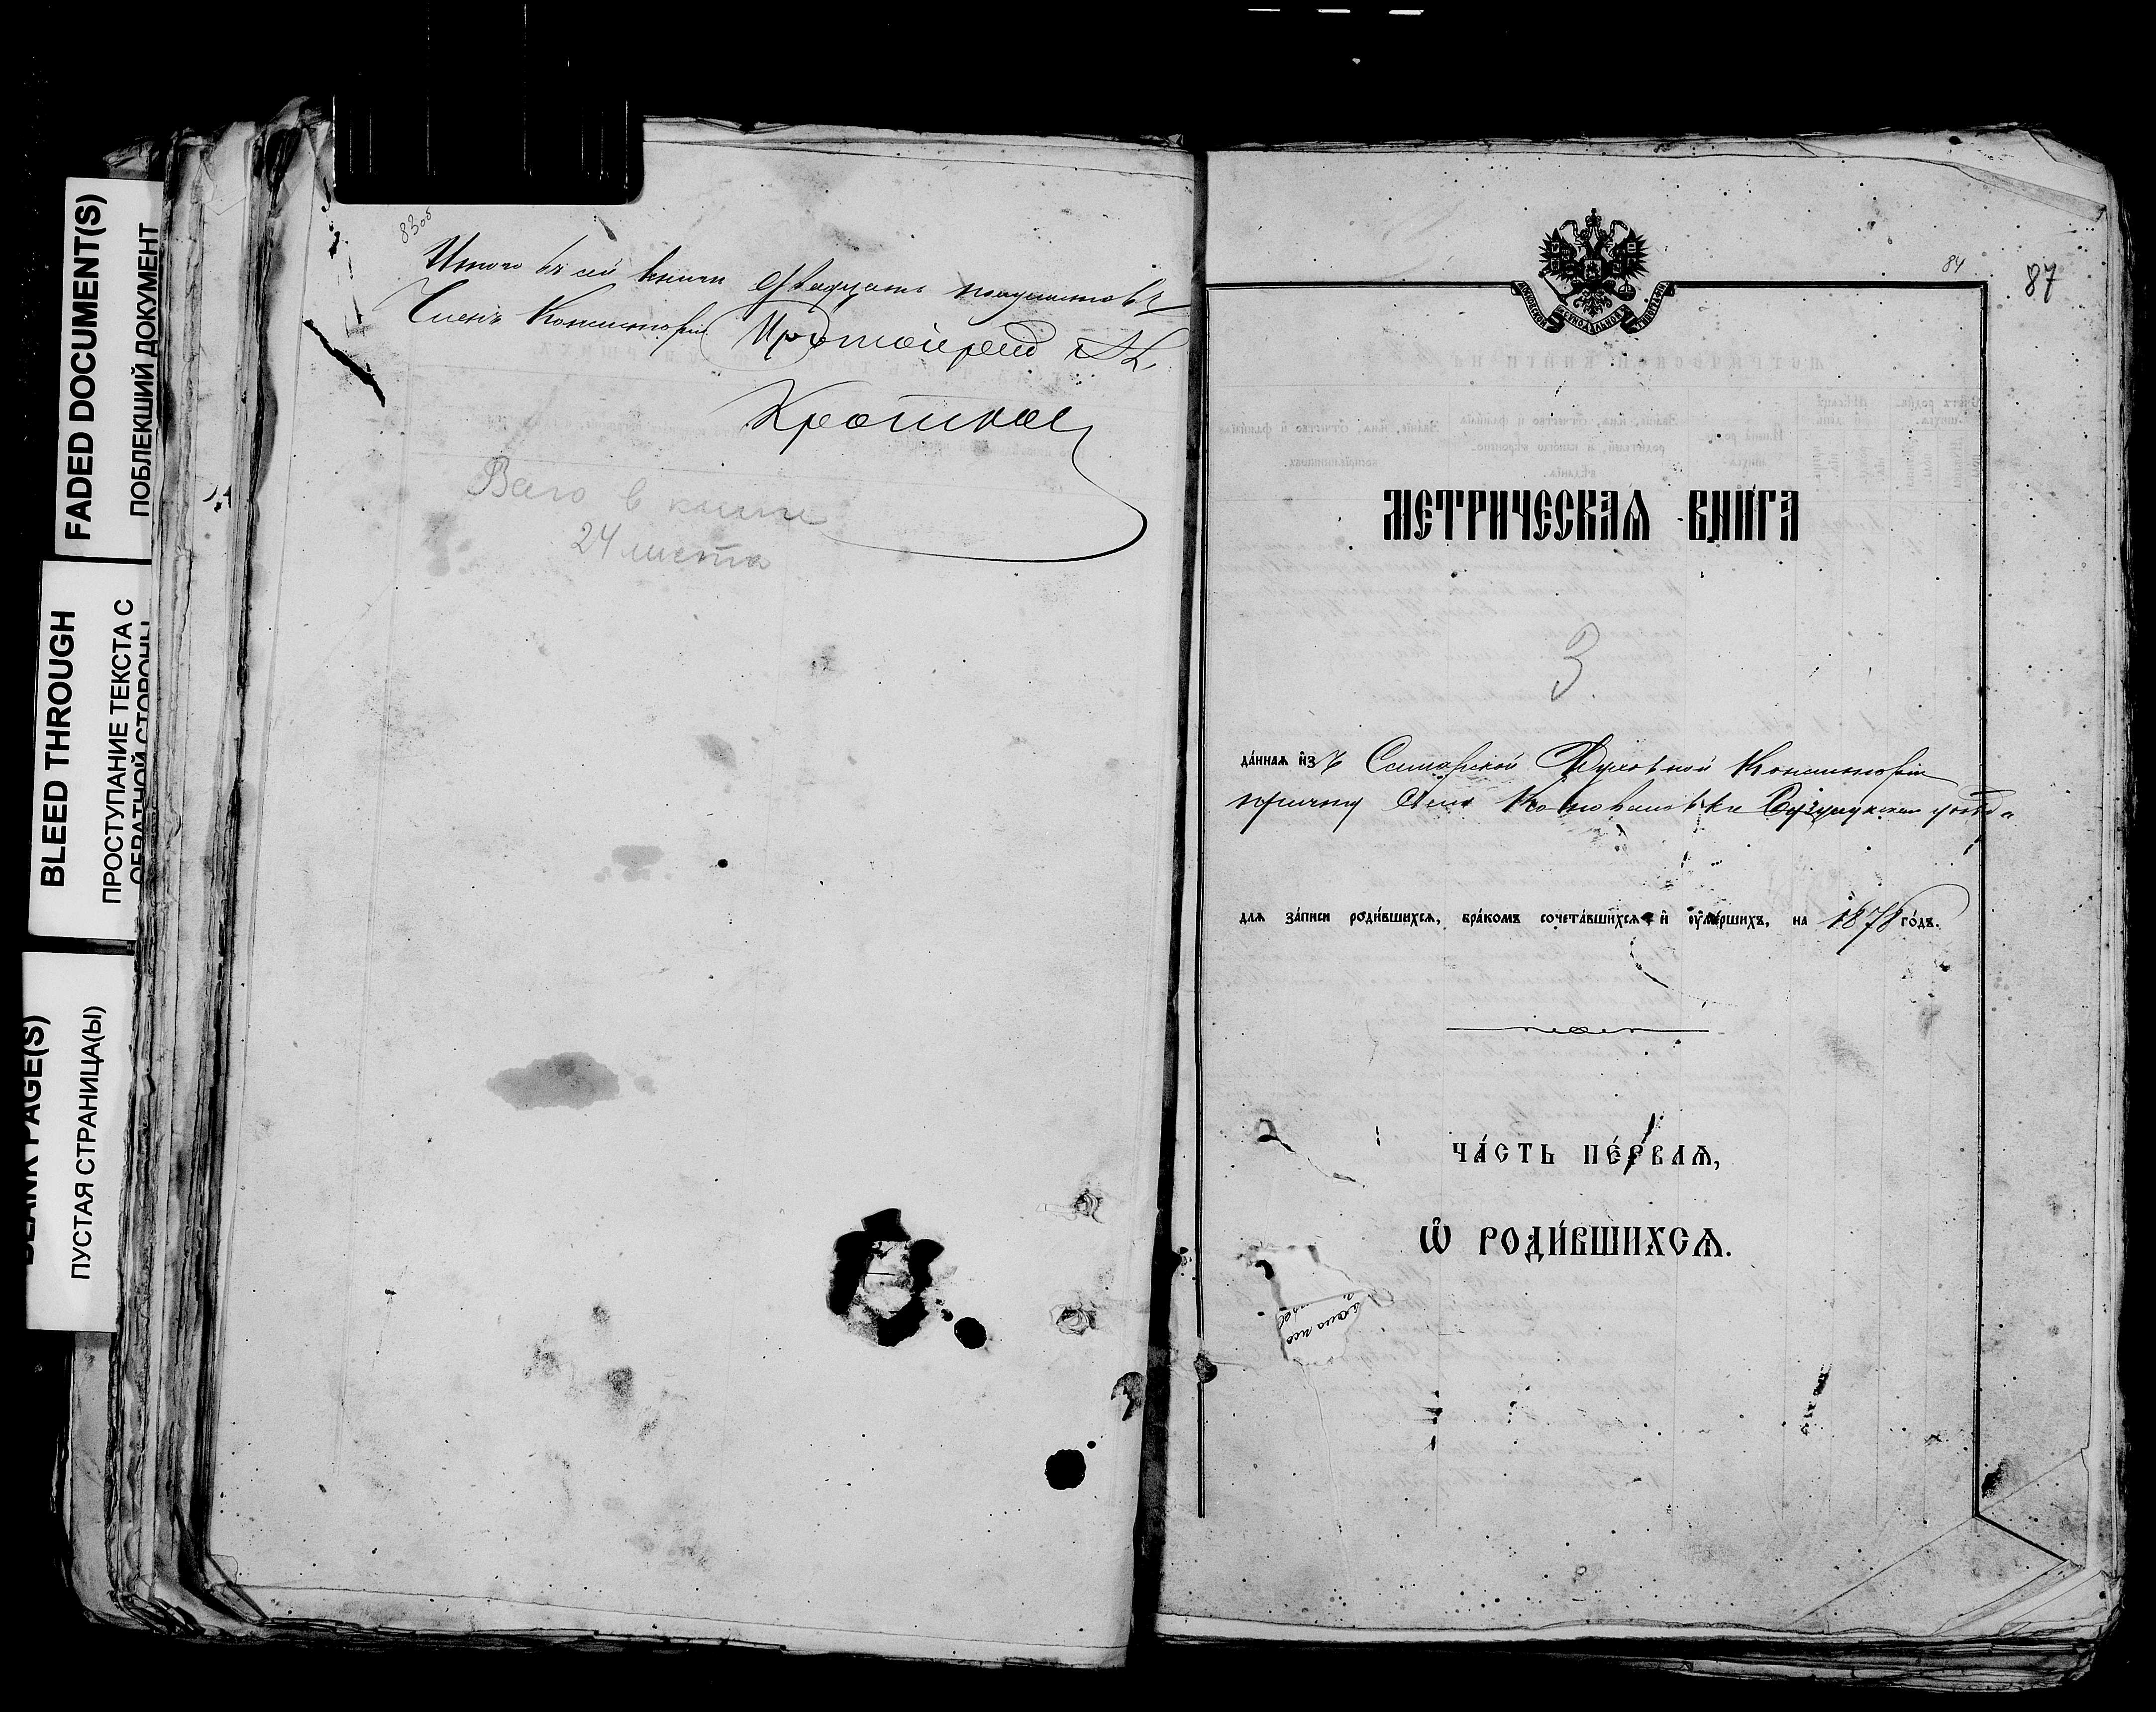 FADED DOCUMENT(S)
ПОБЛЕКШИЙ ДОКУМЕНТ
BLEED THROUGH
ПРОСТУПАНИЕ ТЕКСТА С
ОБРАТНОЙ СТОРОНЫ
BLANK PAGE(S)
ПУСТАЯ СТРАНИЦА(Ы)
83об
Итого въ сей книги двадцать полулистовъ
Членъ Консисторіи Протоіерей
Кротков
Всего в книге
24 листа
84
87
МОСКОВСКОЙ СѴНОДАЛЬНОЙ ТИПОГРАФІИ
МЕТРИЧЕСКАѦ КНИГА
3
да́ннаѧ и҆зъ Самарской Духовной Консисторіи
причту села Бузулукскаго уѣзда
длѧ за́писи роди́вшихсѧ, бра́комъ сочета́вшихсѧ и҆ ᲂу҆ме́ршихъ, на 1878 го́дъ.
ЧА́СТЬ ПЕ́РВАѦ,
Ѽ РОДИ́ВШИХСѦ.